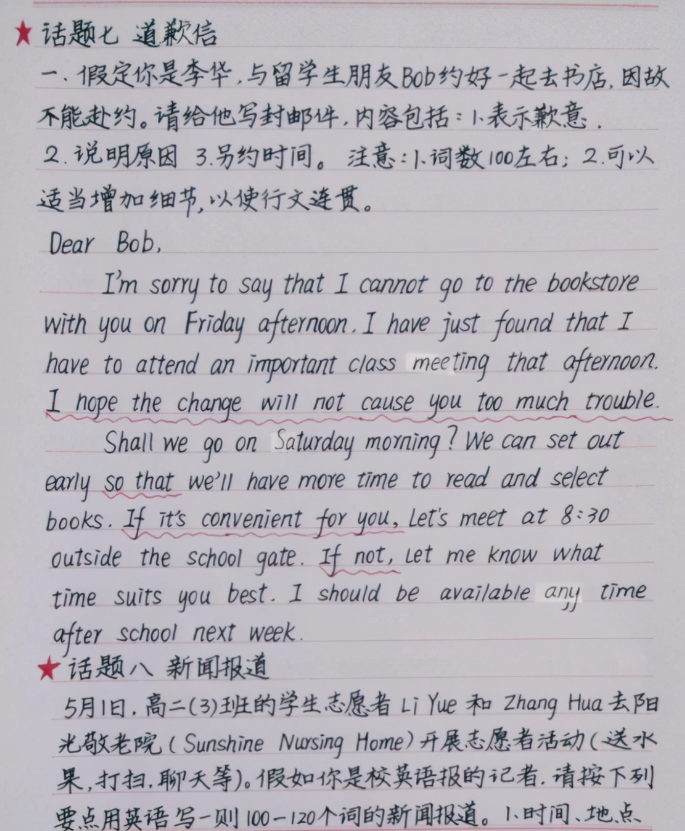 ★ 话题七 道歉信
一. 假定你是李华,与留学生朋友Bob约好一起去书店,因故
不能赴约。请给他写封邮件,内容包括:1.表示歉意.
2.说明原因 3.另约时间。 注意:1.词数100左右;2.可以
适当增加细节,以使行文连贯。
Dear Bob,
I'm sorry to say that I cannot go to the bookstore
with you on Friday afternoon. I have just found that I
have to attend an important class meeting that afternoon.
I hope the change will not cause you too much trouble.
Shall we go on Saturday morning? We can set out
early so that we'll have more time to read and select
books. If it's convenient for you, Let's meet at 8:30
outside the school gate. If not, Let me know what
time suits you best. I should be available any time
after school next week.
★ 话题八 新闻报道
5月1日,高二(3)班的学生志愿者 Li Yue 和 Zhang Hua 去阳
光敬老院(Sunshine Nursing Home)开展志愿者活动(送水
果,打扫,聊天等)。假如你是校英语报的记者.请按下列
要点用英语写一则100-120个词的新闻报道。1.时间、地点、